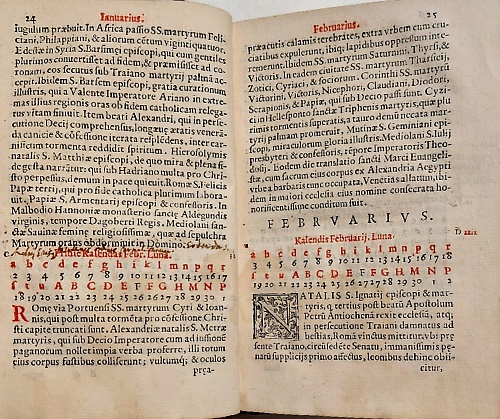 24 Ianuarius.
iugulum præbuit. In Africa passio SS. martyrum Felic
iani, Philappiani, & aliorum cētum vigintiquatuor.
Edessæ in Syria S. Barsimęi episcopi, qui cum gentiles
plurimos conuertisset ad fidem, & præmisisset ad co
ronam, eos secutus sub Traiano martyrij palmā ac-
cepit. ibidem S. Barsem episcopi, gratia curationum
illustris, qui a Valente Imperatore Ariano in extre-
mas illius regionis oras ob fidem catholicam relega-
tus vitam finiuit. Item beati Alexandri, qui in perse-
cutione Decij comprehensus, longęuę ætatis venerā-
da canicie & cōfessione iterata resplēdens, inter car-
nificum tormenta reddidit spiritum. Hierosolymis
natalis S. Matthiæ episcopi, de quo mira & plena fi-
de gesta narrātur: qui sub Hadriano multa pro Chri-
sto perpessus, demum in pace quieuit. Romæ S. Felicis
Papæ terrij, qui pro fide catholica plurimum labora-
uit. Papiæ S. Armentarij episcopi & confessoris. In
Malbodio Hannoniæ monasterio sanctę Aldegundis
virginis, tempore Dagoberti Regis. Mediolani san-
ctæ Sauinæ feminę religiosissimæ, quæ ad sepulchra
Martyrum orans obdormiuit in Domino.
Pridie Kalendas Febr. Luna.
a b c d e f g h i k l m n p q r
2 3 4 5 6 7 8 9 10 11 12 13 14 15 16 17
s t u A B C D E F G H M N P
18 19 20 21 22 23 24 25 26 27 28 29 30 1
Romę via Portuensi SS. martyrum Cyri & Ioan-
nis, qui post multa tormēta pro cōfessione Chri-
sti capite truncati sunt. Alexandriæ natalis S. Metræ
martyris, qui sub Decio Imperatore cum ad iussionē
paganorum nollet impia verba proferre, illi totum
eius corpus fustibus colliserunt; vultumq; & oculos
præa-
Februarius. 25
præacutis calamis terebrātes, extra vrbem cum cru-
ciatibus expulerunt, ibiq; lapidibus oppressum inte-
remerunt. ibidem SS. martyrum Saturnini, Thyrsi, &
Victoris. In eadem ciuitate SS. martyrum Tharsicij,
Zotici, Cyriaci, & sociorum. Corinthi SS. martyrū
Victorini, Victoris, Nicephori, Claudij, Diodori,
Serapionis, & Papiæ, qui sub Decio passi sunt. Cyzi-
ci in Hellesponto sanctæ Triphenis martyris, quæ plu
rimis tormentis superatis, a tauro demū necata mar-
tyrij palmam promeruit. Mutinæ S. Geminiani epi-
scopi, miraculorum gloria illustris. Mediolani S. Iulij
presbyteri & confessoris, tēpore Imperatoris Theo-
dosij. Eodem die translatio sancti Marci Euangeli-
stæ, cum sacrum eius corpus ex Alexandria Aegypti
vrbe a barbaris tunc occupata, Venetias allatum, ibi-
dem in maiori ecclesia eius nomine consecrata ho-
norificentissime conditum fuit.
FEBRVARIVS.
Kalendis Februarij. Luna.
a b c d e f g h i k l m n p q r
3 4 5 6 7 8 9 10 11 12 13 14 15 16 17 18
s t u A B C D E F G H M N P
19 20 21 22 23 24 25 26 27 28 29 30 1 2
NATALIS S. Ignatij episcopi & mar-
tyris, q tertius post beatū Apostolum
Petrū Antiochenā rexit ecclesiā, atq;
in persecutione Traiani damnatus ad
bestias, Romā vinctus mittitur. vbi prę
sente Traiano, circūsedēte Senatu, immanissimis pę-
narū supplicijs primo affectus, leonibus dehinc obii-
citur,